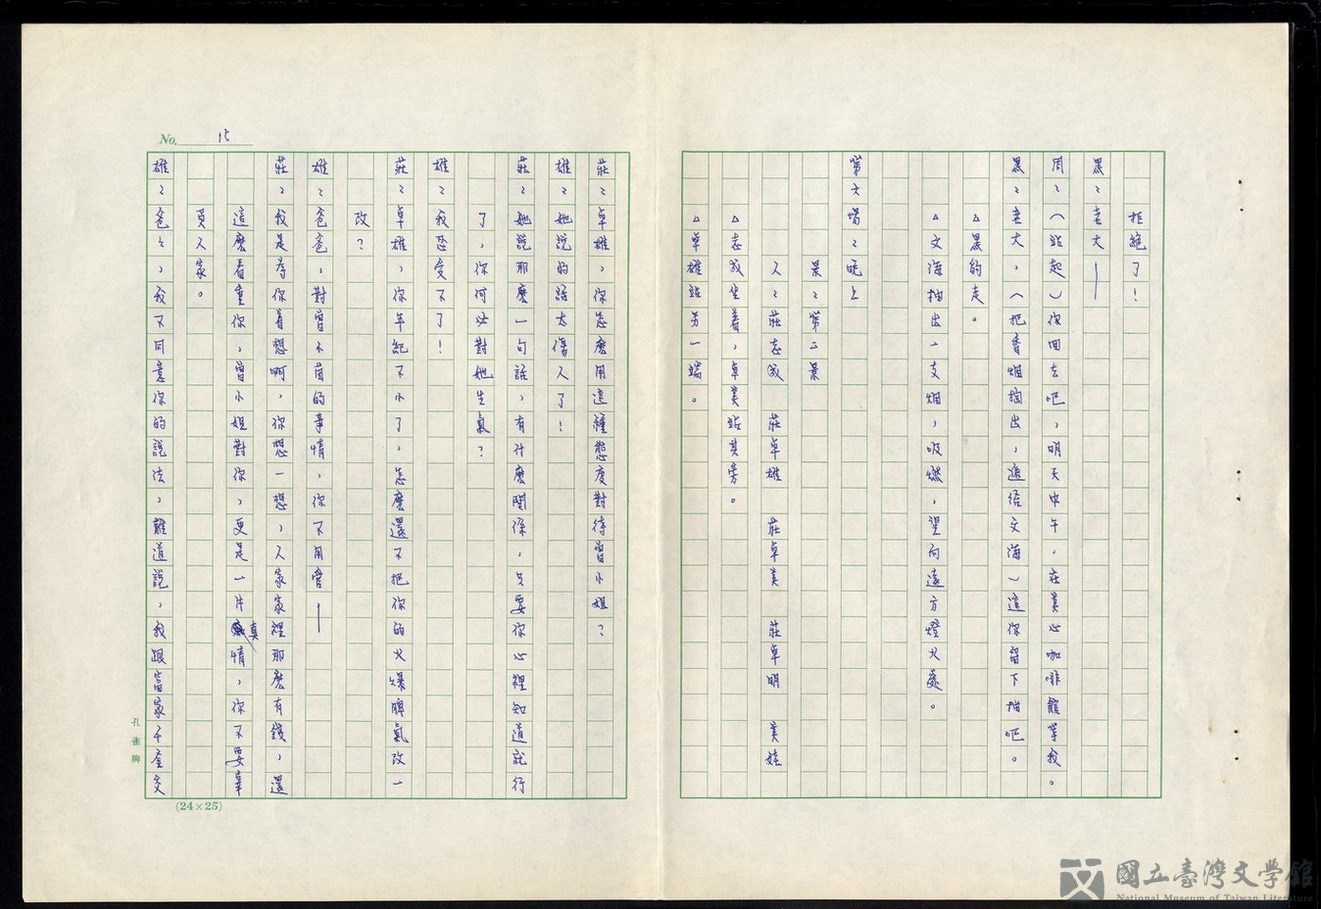 拒絕了！
黑：老大——
周：（站起）你回去吧，明天中午，在美心咖啡館等我。
黑：老大，（把香烟掏出，遞給文海）這你留下抽吧。
△黑的走。
△文海抽出一支烟，吸燃，望向遠方燈火處。
第六場：晚上
景：第二景
人：莊志成　莊卓雄　莊卓美　莊卓明　美娃
△志成坐着，卓美站其旁。
△卓雄站另一端。
莊：卓雄，你怎麼用這種態度對待曾小姐？
雄：她說的話太傷人了！
莊：她說那麼一句話，有什麼關係，只要你心裡知道就行
了，你何必對她生氣？
雄：我忍受不了！
莊：卓雄，你年紀不小了，怎麼還不把你的火爆脾氣改一
改？
雄：爸爸，對曾小茵的事情，你不用管——
莊：我是為你着想啊，你想一想，人家家裡那麼有錢，還
這麼看重你，曾小姐對你，更是一片真情，你不要辜
負人家。
雄：爸爸，我不同意你的說法，難道說，我跟富家千金交
No. 15
孔雀牌
(24×25)
國立臺灣文學館
National Museum of Taiwan Literature